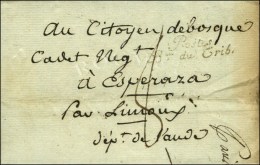 Au Citoyen debosque
Cadet Negt
à Esperaza
Par Limoux
dépt. de l'aude
du Trib.